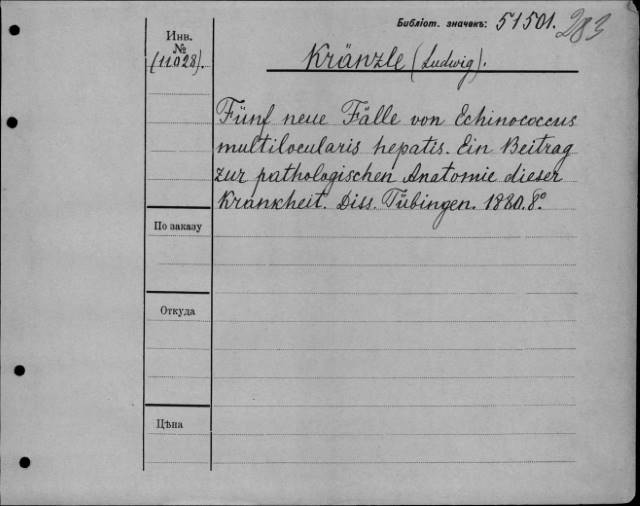 Библіот. значекъ: 51501. 283
Инв.
№
(11028).
Kränzle (Ludwig).
Fünf neue Fälle von Echinococcus
multilocularis hepatis. Ein Beitrag
zur pathologischen Anatomie dieser
Krankheit. Diss. Tübingen. 1880. 8º.
По заказу
Откуда
Цѣна